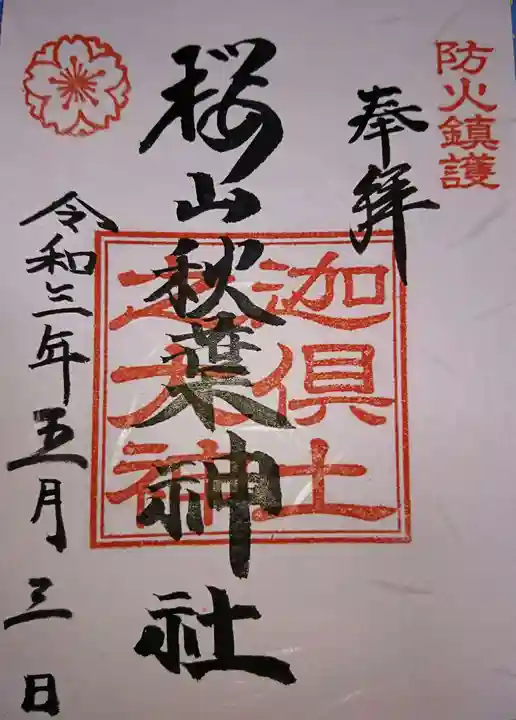 防火鎮護
奉拝
桜山秋葉神社
迦倶土
之大神
令和三年五月三日